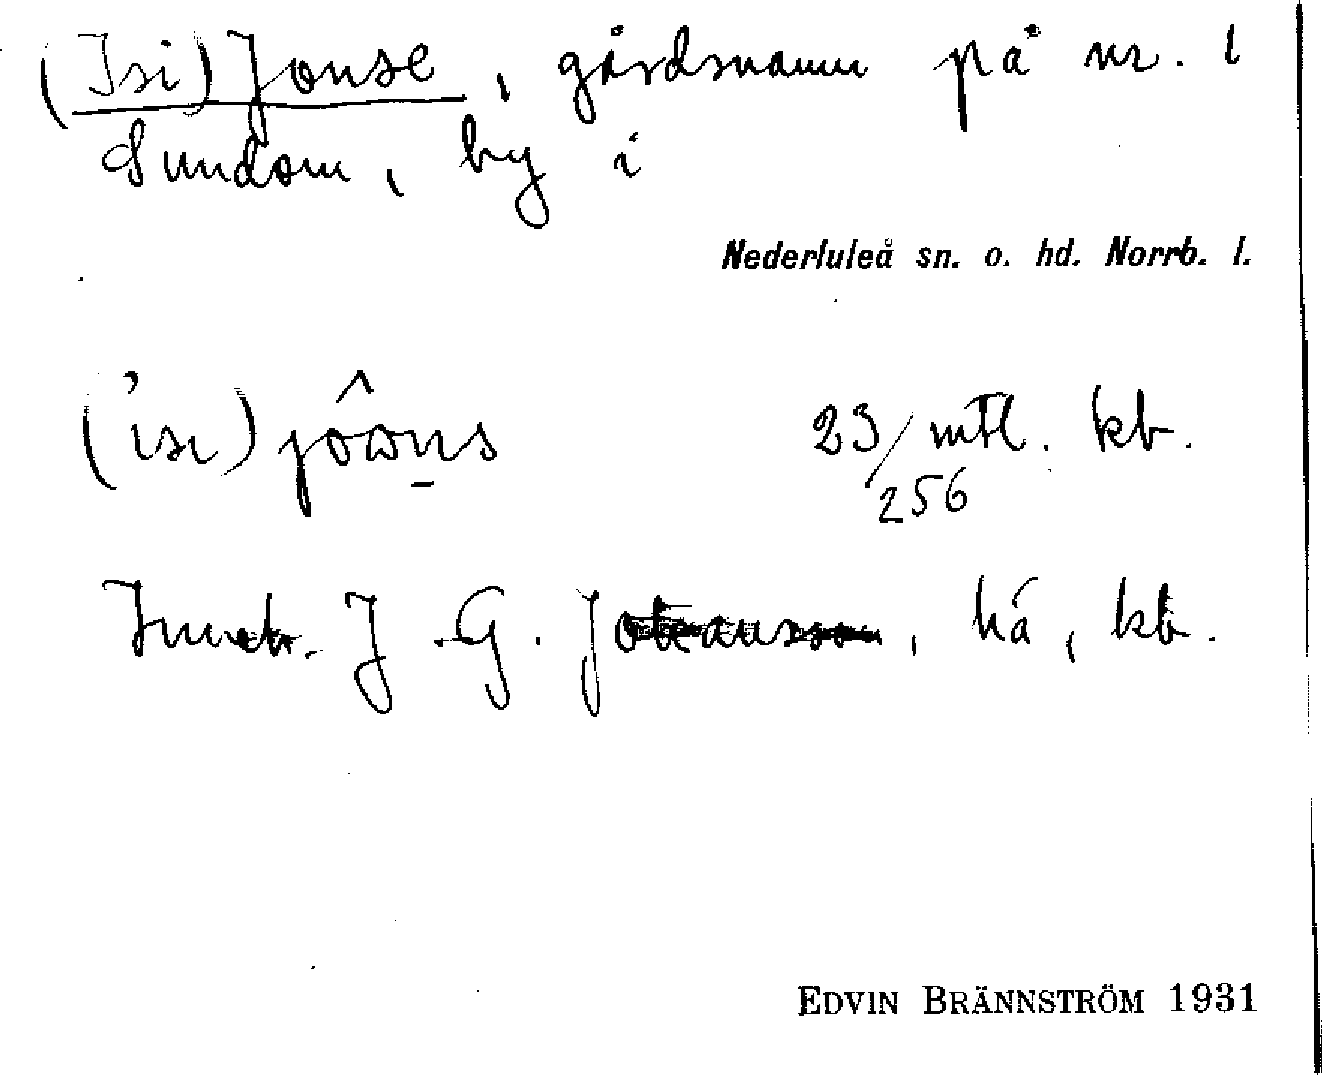 (Isi) Jonse, gårdsnamn på nr. 1
Sundom, by i
Nederluleå sn. o. hd. Norrb. l.
23/256 mtl. kb.
J. G. Johansson, hå, kb.
EDVIN BRÄNNSTRÖM 1931